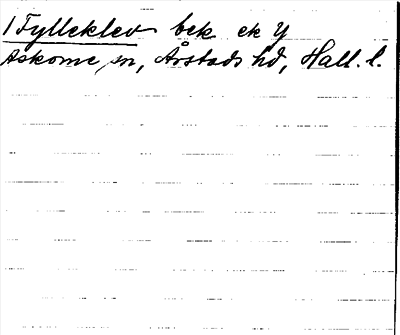 1 Fylleklev bek. ek Y
Askome sn, Årstads hd, Hall. l.